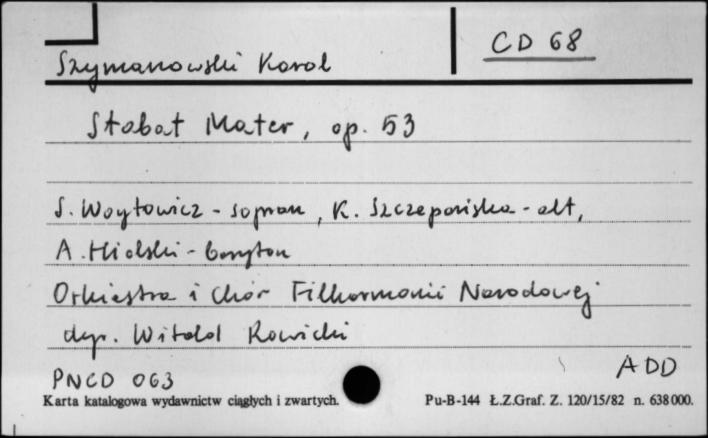 CD 68
Szymanowski Karol
Stabat Mater, op. 53
S. Woytowicz - sopran, K. Szczepańska - alt,
A. Hiolski - baryton
Orkiestra i Chór Filharmonii Narodowej
dyr. Witold Rowicki
PNCD 063
ADD
Karta katalogowa wydawnictw ciągłych i zwartych.
Pu-B-144 Ł.Z.Graf. Z. 120/15/82 n. 638000.